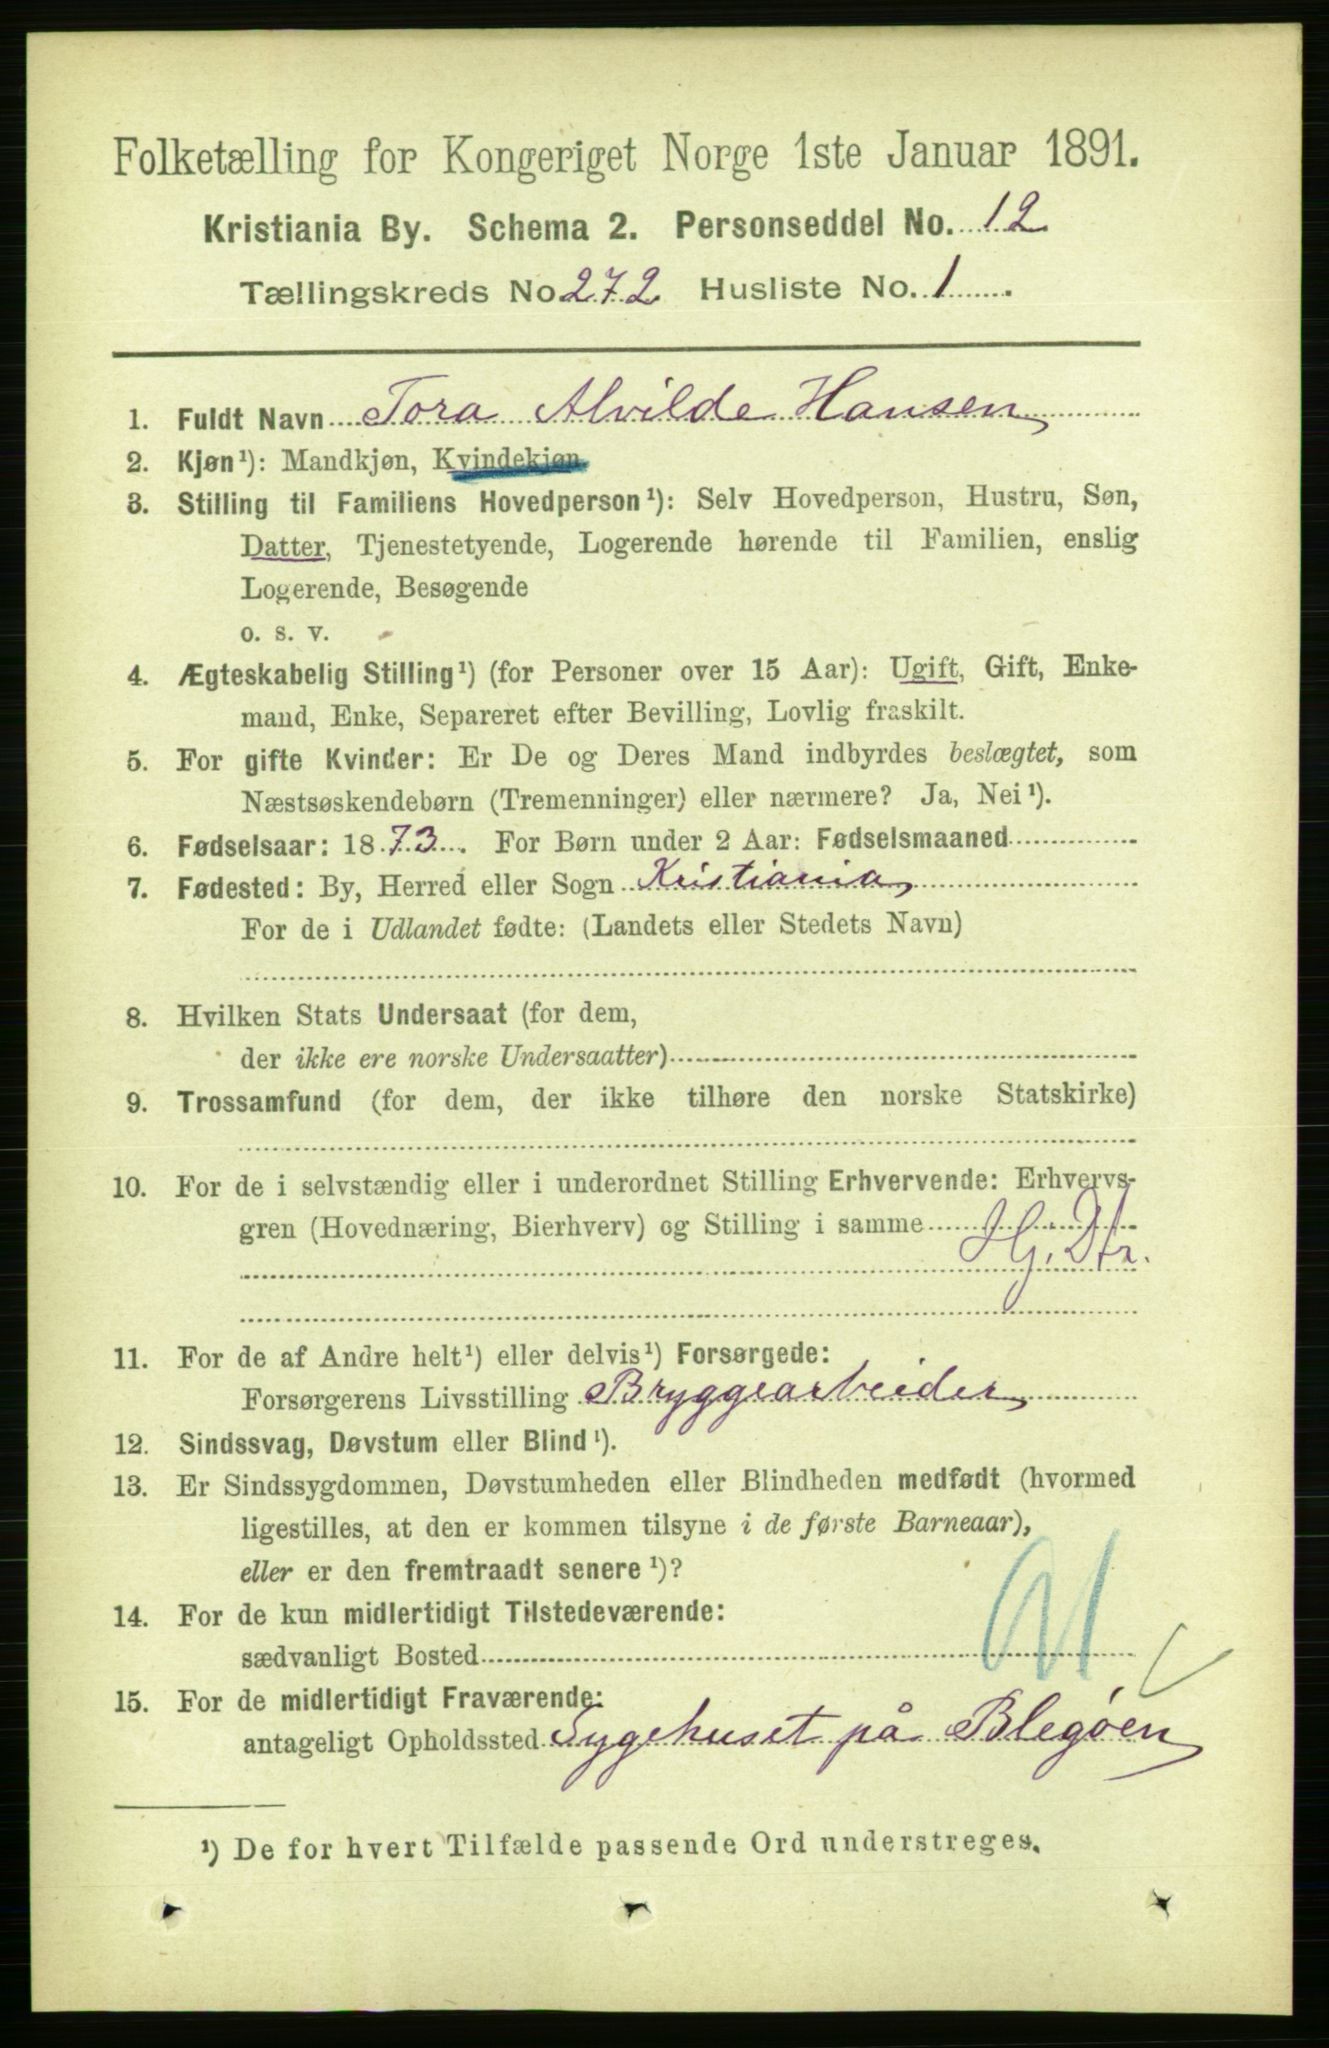 Folketælling for Kongeriget Norge 1ste Januar 1891.
Kristiania By. Schema 2. Personseddel No. 12
Tællingskreds No 272 Husliste No. 1
1. Fuldt Navn Tora Alvilde Hansen
2. Kjøn¹): Mandkjøn, Kvindekjøn
3. Stilling til Familiens Hovedperson¹): Selv Hovedperson, Hustru, Søn,
Datter, Tjenestetyende, Logerende hørende til Familien, enslig
Logerende, Besøgende
o. s. v.
4. Ægteskabelig Stilling¹) (for Personer over 15 Aar): Ugift, Gift, Enke-
mand, Enke, Separeret efter Bevilling, Lovlig fraskilt.
5. For gifte Kvinder: Er De og Deres Mand indbyrdes beslægtet, som
Næstsøskendebørn (Tremenninger) eller nærmere? Ja, Nei¹).
6. Fødselsaar: 1873. For Børn under 2 Aar: Fødselsmaaned
7. Fødested: By, Herred eller Sogn Kristiania
For de i Udlandet fødte: (Landets eller Stedets Navn)
8. Hvilken Stats Undersaat (for dem,
der ikke ere norske Undersaatter)
9. Trossamfund (for dem, der ikke tilhøre den norske Statskirke)
10. For de i selvstændig eller i underordnet Stilling Erhvervende: Erhvervs-
gren (Hovednæring, Bierhverv) og Stilling i samme
HG. Dtr.
11. For de af Andre helt¹) eller delvis¹) Forsørgede:
Forsørgerens Livsstilling Bryggearbeider
12. Sindssvag, Døvstum eller Blind¹).
13. Er Sindssygdommen, Døvstumheden eller Blindheden medfødt (hvormed
ligestilles, at den er kommen tilsyne i de første Barneaar),
eller er den fremtraadt senere¹)?
14. For de kun midlertidigt Tilstedeværende:
sædvanligt Bosted
15. For de midlertidigt Fraværende:
antageligt Opholdssted Sygehuset på Blegøen
¹) De for hvert Tilfælde passende Ord understreges.